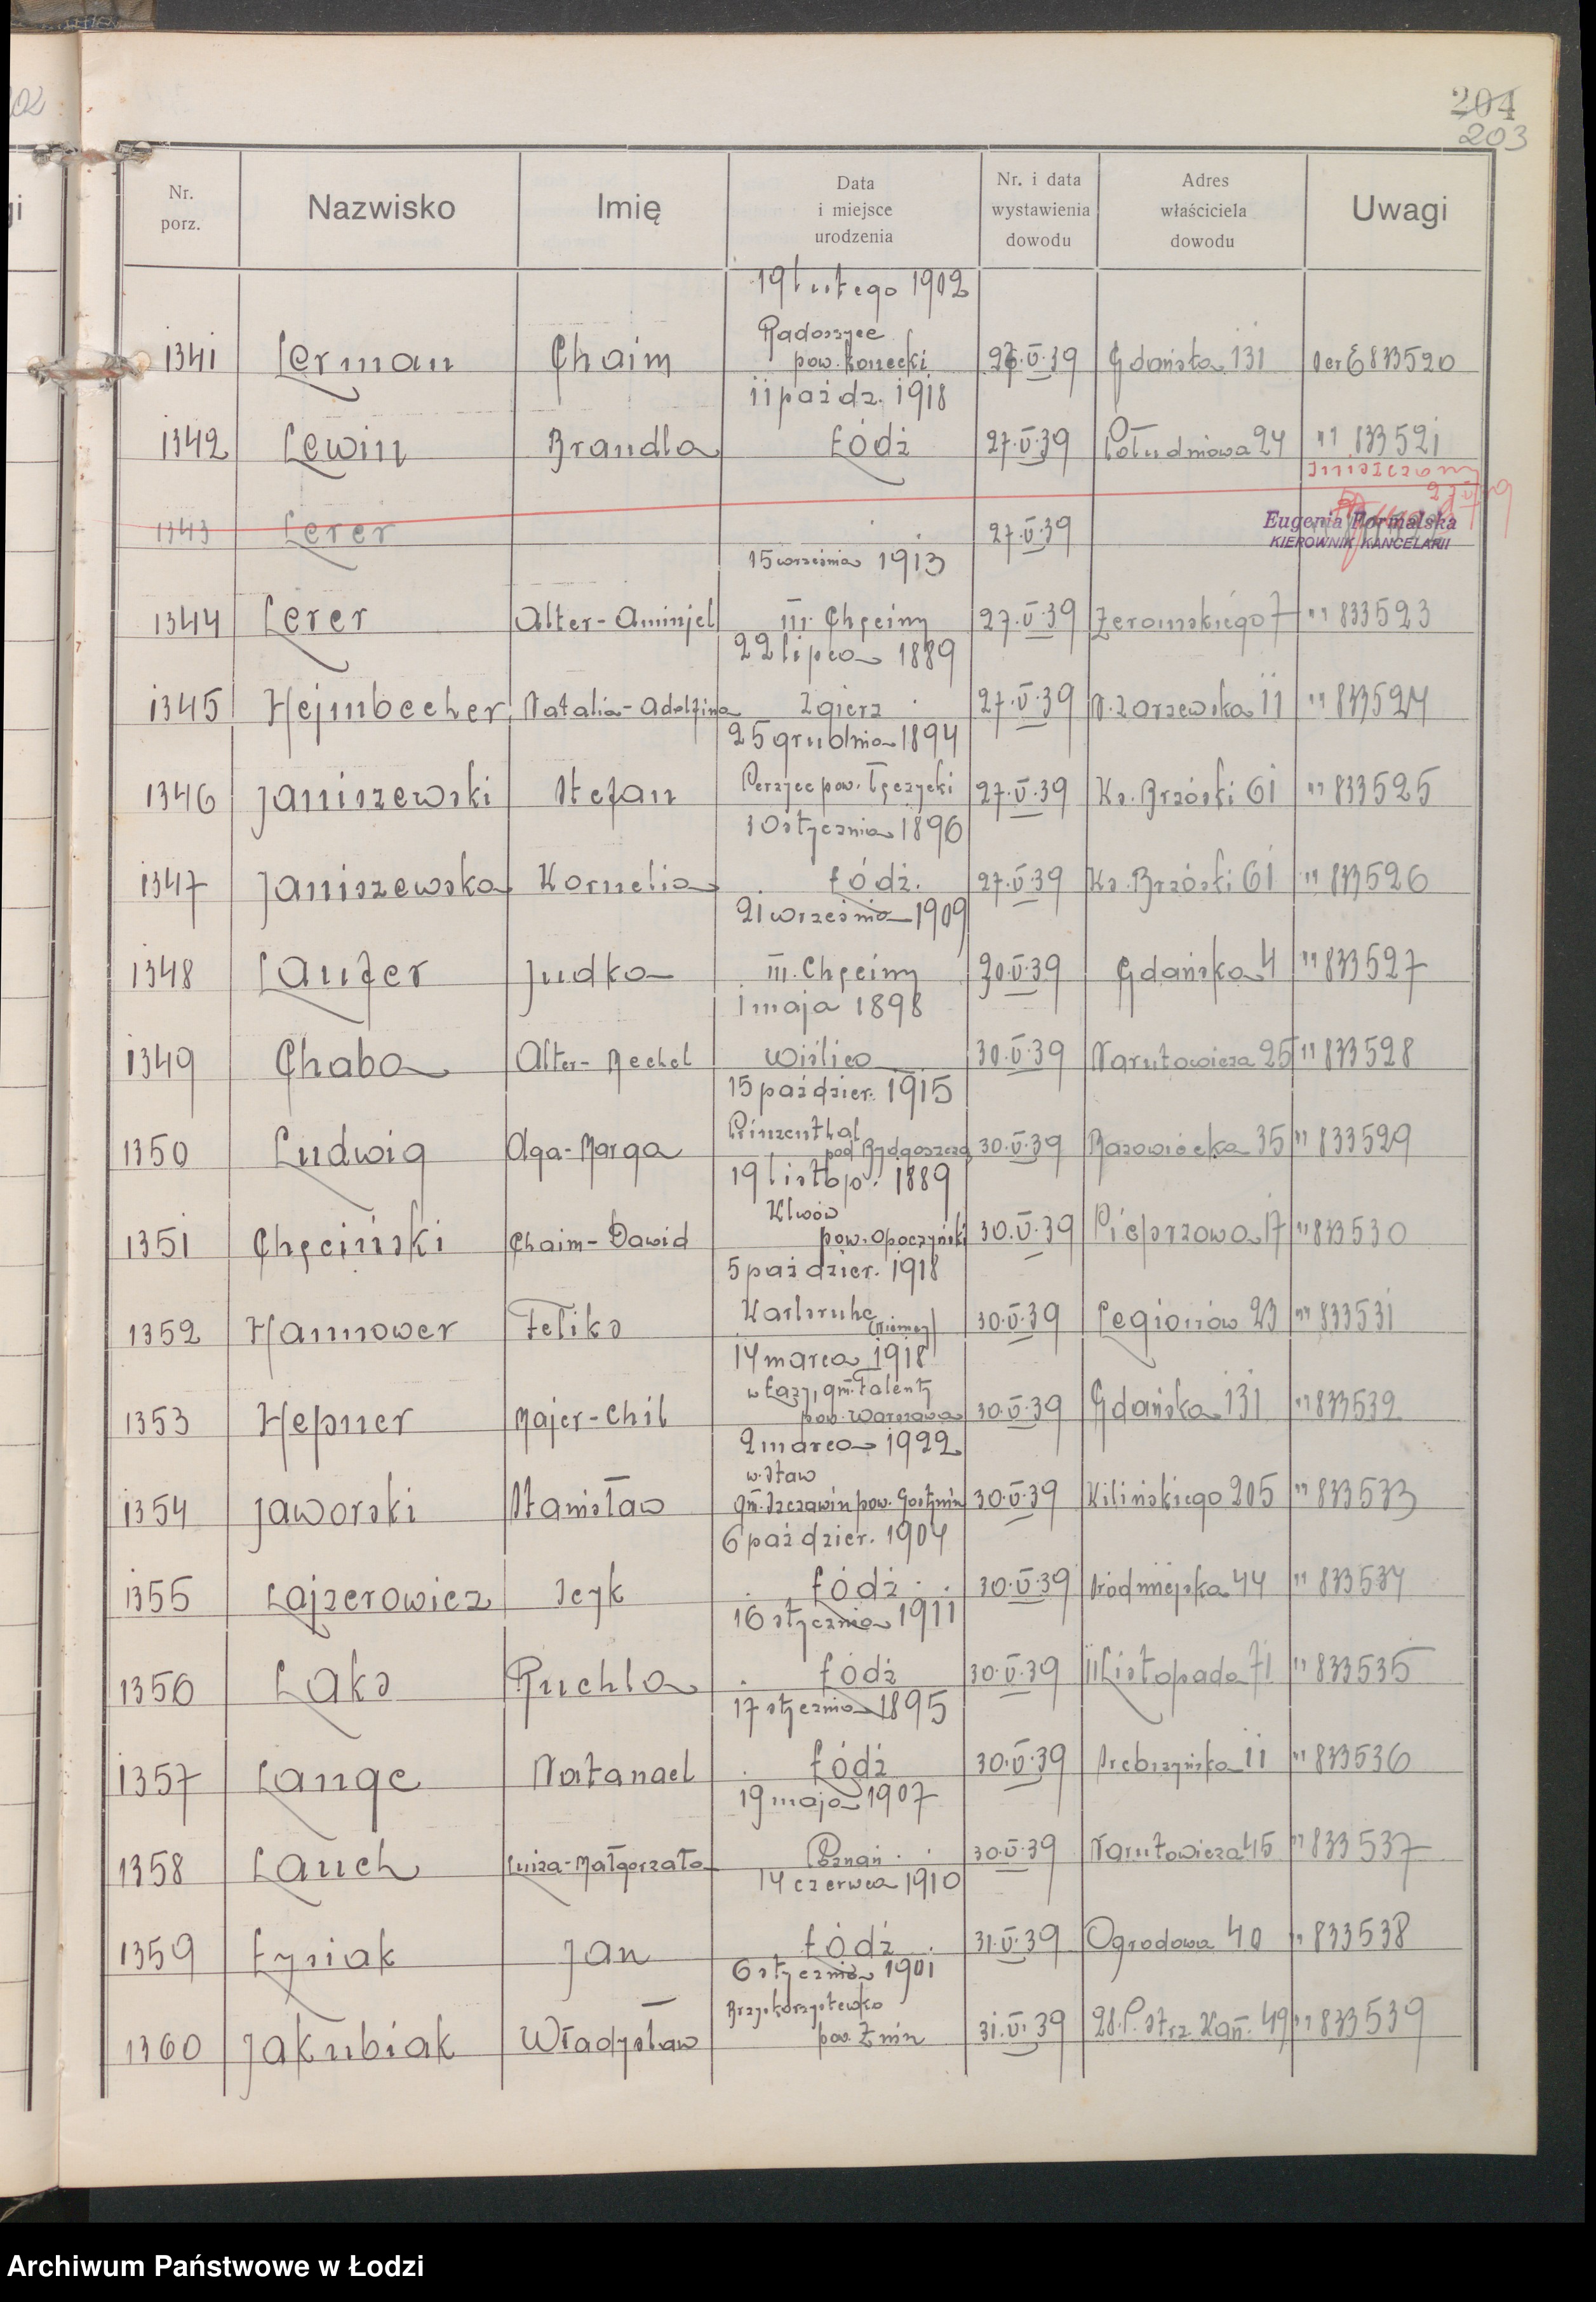 204
203
Nr. porz. Nazwisko Imię Data i miejsce urodzenia Nr. i data wystawienia dowodu Adres właściciela dowodu Uwagi
19 lutego 1902
Radoszyce
1341 Lerman Chaim pow. Konecki 27.V.39 Gdańska 131 Ser E 833520
11 paźdz. 1918
1342 Lewin Brandla Łódź 27.V.39 Południowa 24 " 833521
1343 Lerer 27.V.39
Eugenia Formalska
KIEROWNIK KANCELARII
15 września 1913
1344 Lerer Alter-Aminjel m. Chęciny 27.V.39 Żeromskiego 7 " 833523
22 lipca 1889
1345 Hejmbecher Natalia-Adolfina Zgierz 27.V.39 N. Zarzewska 11 " 833524
25 grudnia 1894
1346 Janiszewski Stefan Perzyce pow. Łęczycki 27.V.39 Ks. Brzóski 61 " 833525
30 stycznia 1896
1347 Janiszewska Kornelia Łódź. 27.V.39 Ks. Brzóski 61 " 833526
21 września 1909
1348 Laufer Judka m. Chęciny 30.V.39 Gdańska 4 " 833527
1 maja 1898
1349 Chaba Alter-Mechel Wiślica 30.V.39 Narutowicza 25 " 833528
15 paździer. 1915
Prinzenthal
1350 Ludwig Olga-Marga pod Bydgoszczą 30.V.39 Mazowiecka 35 " 833529
19 listop. 1889
Klwów
1351 Chęciński Chaim-Dawid pow. Opoczyński 30.V.39 Pieprzowa 17 " 833530
5 paździer. 1918
Karlsruhe
1352 Hannower Feliks (Niemcy) 30.V.39 Legionów 23 " 833531
14 marca 1918
w Łazy, gm. Falenty
1353 Hepner Majer-Chil pow. Warszawa 30.V.39 Gdańska 131 " 833532
2 marca 1922
w. Staw
1354 Jaworski Stanisław gm. Szczawin pow. Gostynin 30.V.39 Kilińskiego 205 " 833533
6 paździer. 1904
1355 Lajzerowicz Icyk Łódź 30.V.39 Śródmiejska 44 " 833534
16 stycznia 1911
1356 Laks Ruchla Łódź 30.V.39 11 Listopada 71 " 833535
17 stycznia 1895
1357 Lange Natanael Łódź 30.V.39 Srebrzyńska 11 " 833536
19 maja 1907
1358 Lauch Luiza-Małgorzata Poznań 30.V.39 Narutowicza 45 " 833537
14 czerwca 1910
1359 Łysiak Jan Łódź 31.V.39 Ogrodowa 40 " 833538
6 stycznia 1901
Brzyskorzystewko
1360 Jakubiak Władysław pow. Żnin 31.V.39 28. P. Strz. Kań. 49 " 833539
Archiwum Państwowe w Łodzi